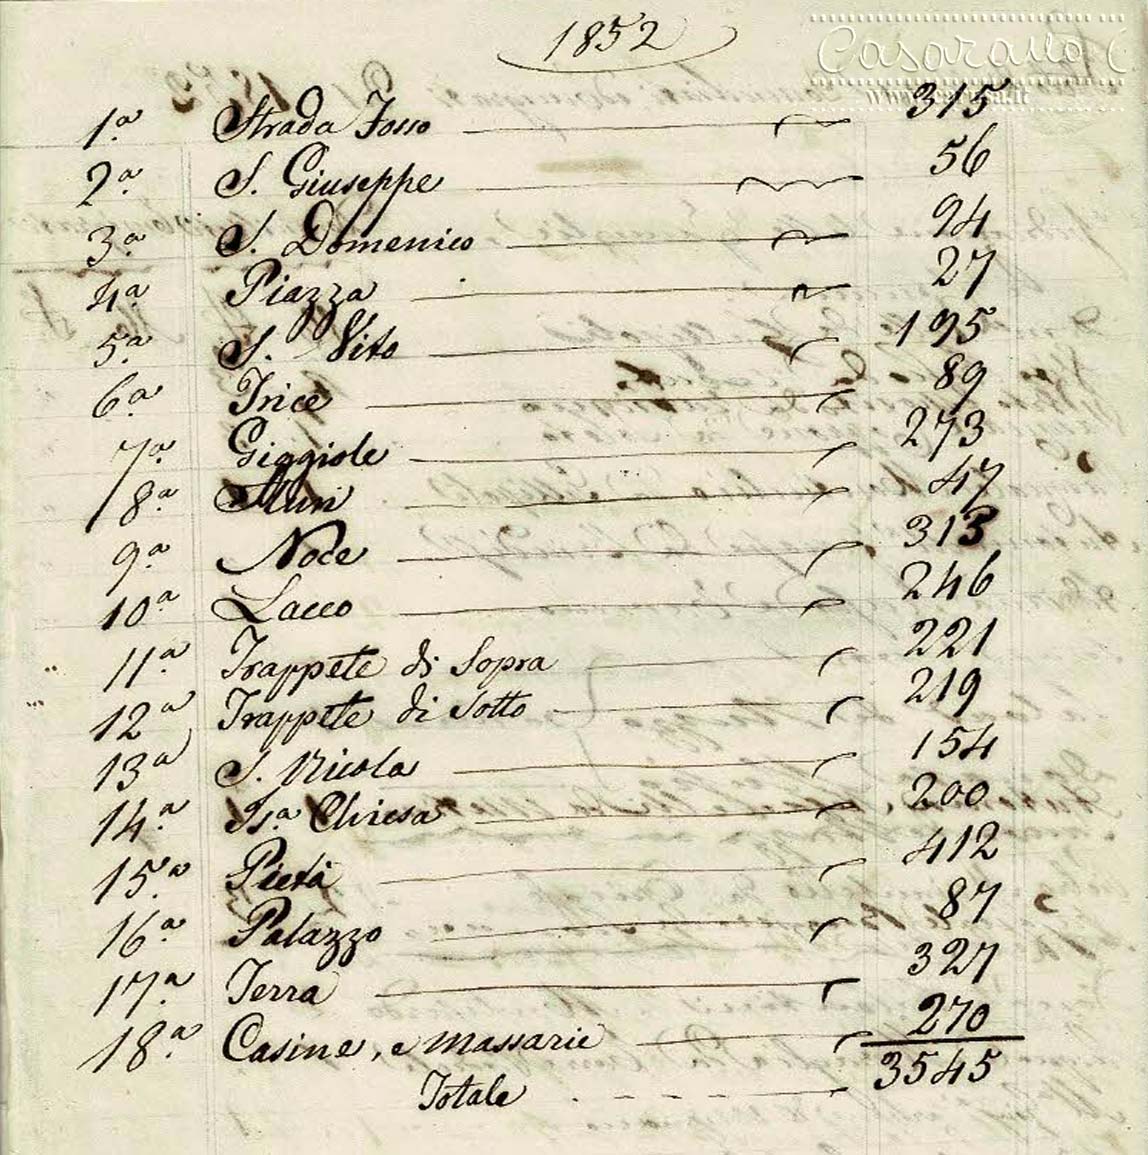 1852
Casarano
1.ª Strada Fosso 315
2.ª S. Giuseppe 56
3.ª S. Domenico 94
4.ª Piazza 27
5.ª S. Vito 195
6.ª Trice 89
7.ª Giggiole 273
8.ª Muri 47
9.ª Noce 313
10.ª Lacco 246
11.ª Trappete di Sopra 221
12.ª Trappete di Sotto 219
13.ª S. Nicola 154
14.ª Chiesa 200
15.ª Pietà 412
16.ª Palazzo 87
17.ª Terra 327
18.ª Casine, e massarie 270
Totale 3545